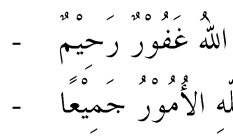 اللهُ غَفُوْرٌ رَحِيْمٌ -
لّهِ الأُمُوْرُ جَمِيْعًا -